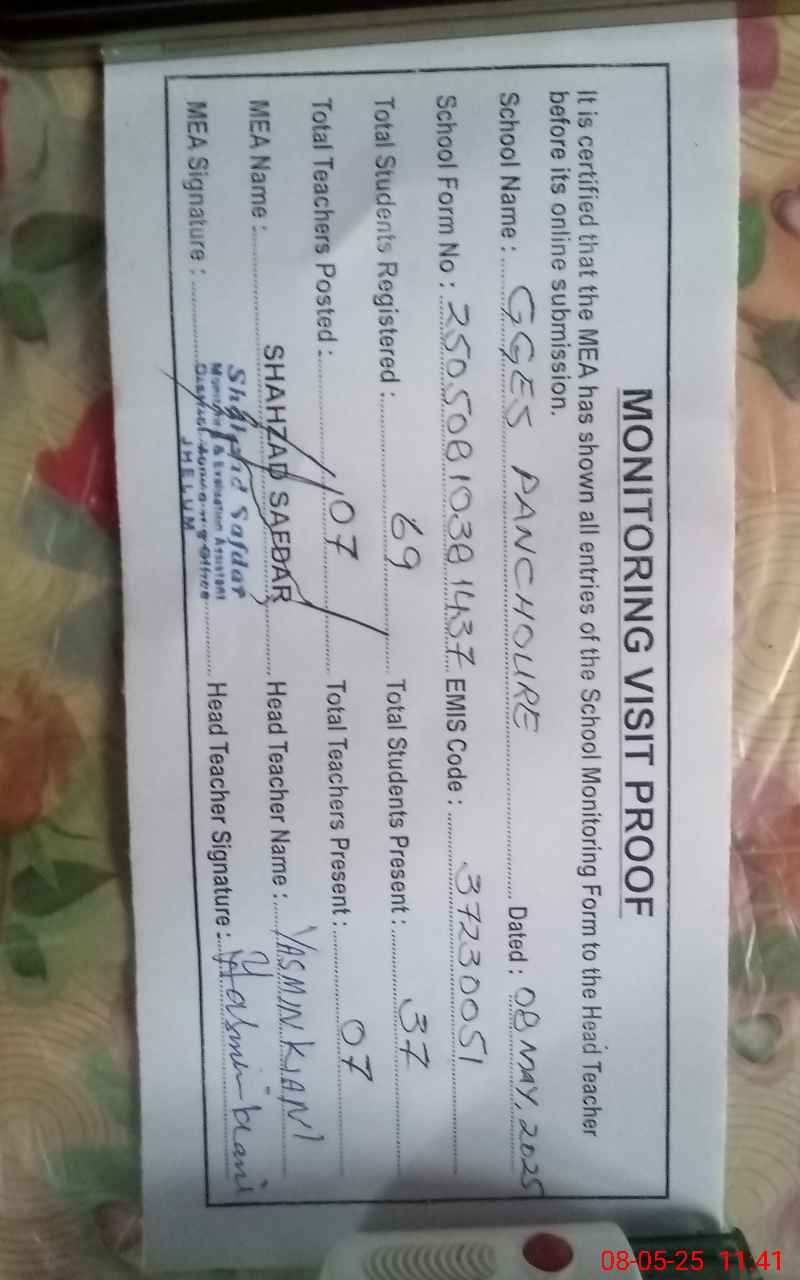 MONITORING VISIT PROOF
It is certified that the MEA has shown all entries of the School Monitoring Form to the Head Teacher
before its online submission.
School Name : GGES PANCHOURE Dated : 08 MAY, 2025
School Form No : 2505081038 1437 EMIS Code : 37230051
Total Students Registered : 69 Total Students Present : 37
Total Teachers Posted : 07 Total Teachers Present : 07
MEA Name : SHAHZAD SAFDAR Head Teacher Name : YASMIN KIANI
MEA Signature : Head Teacher Signature : Yasmin kiani
Shahzad Safdar
Monitoring & Evaluation Assistant
District Monitoring Officer
JHELUM
08-05-25 11:41